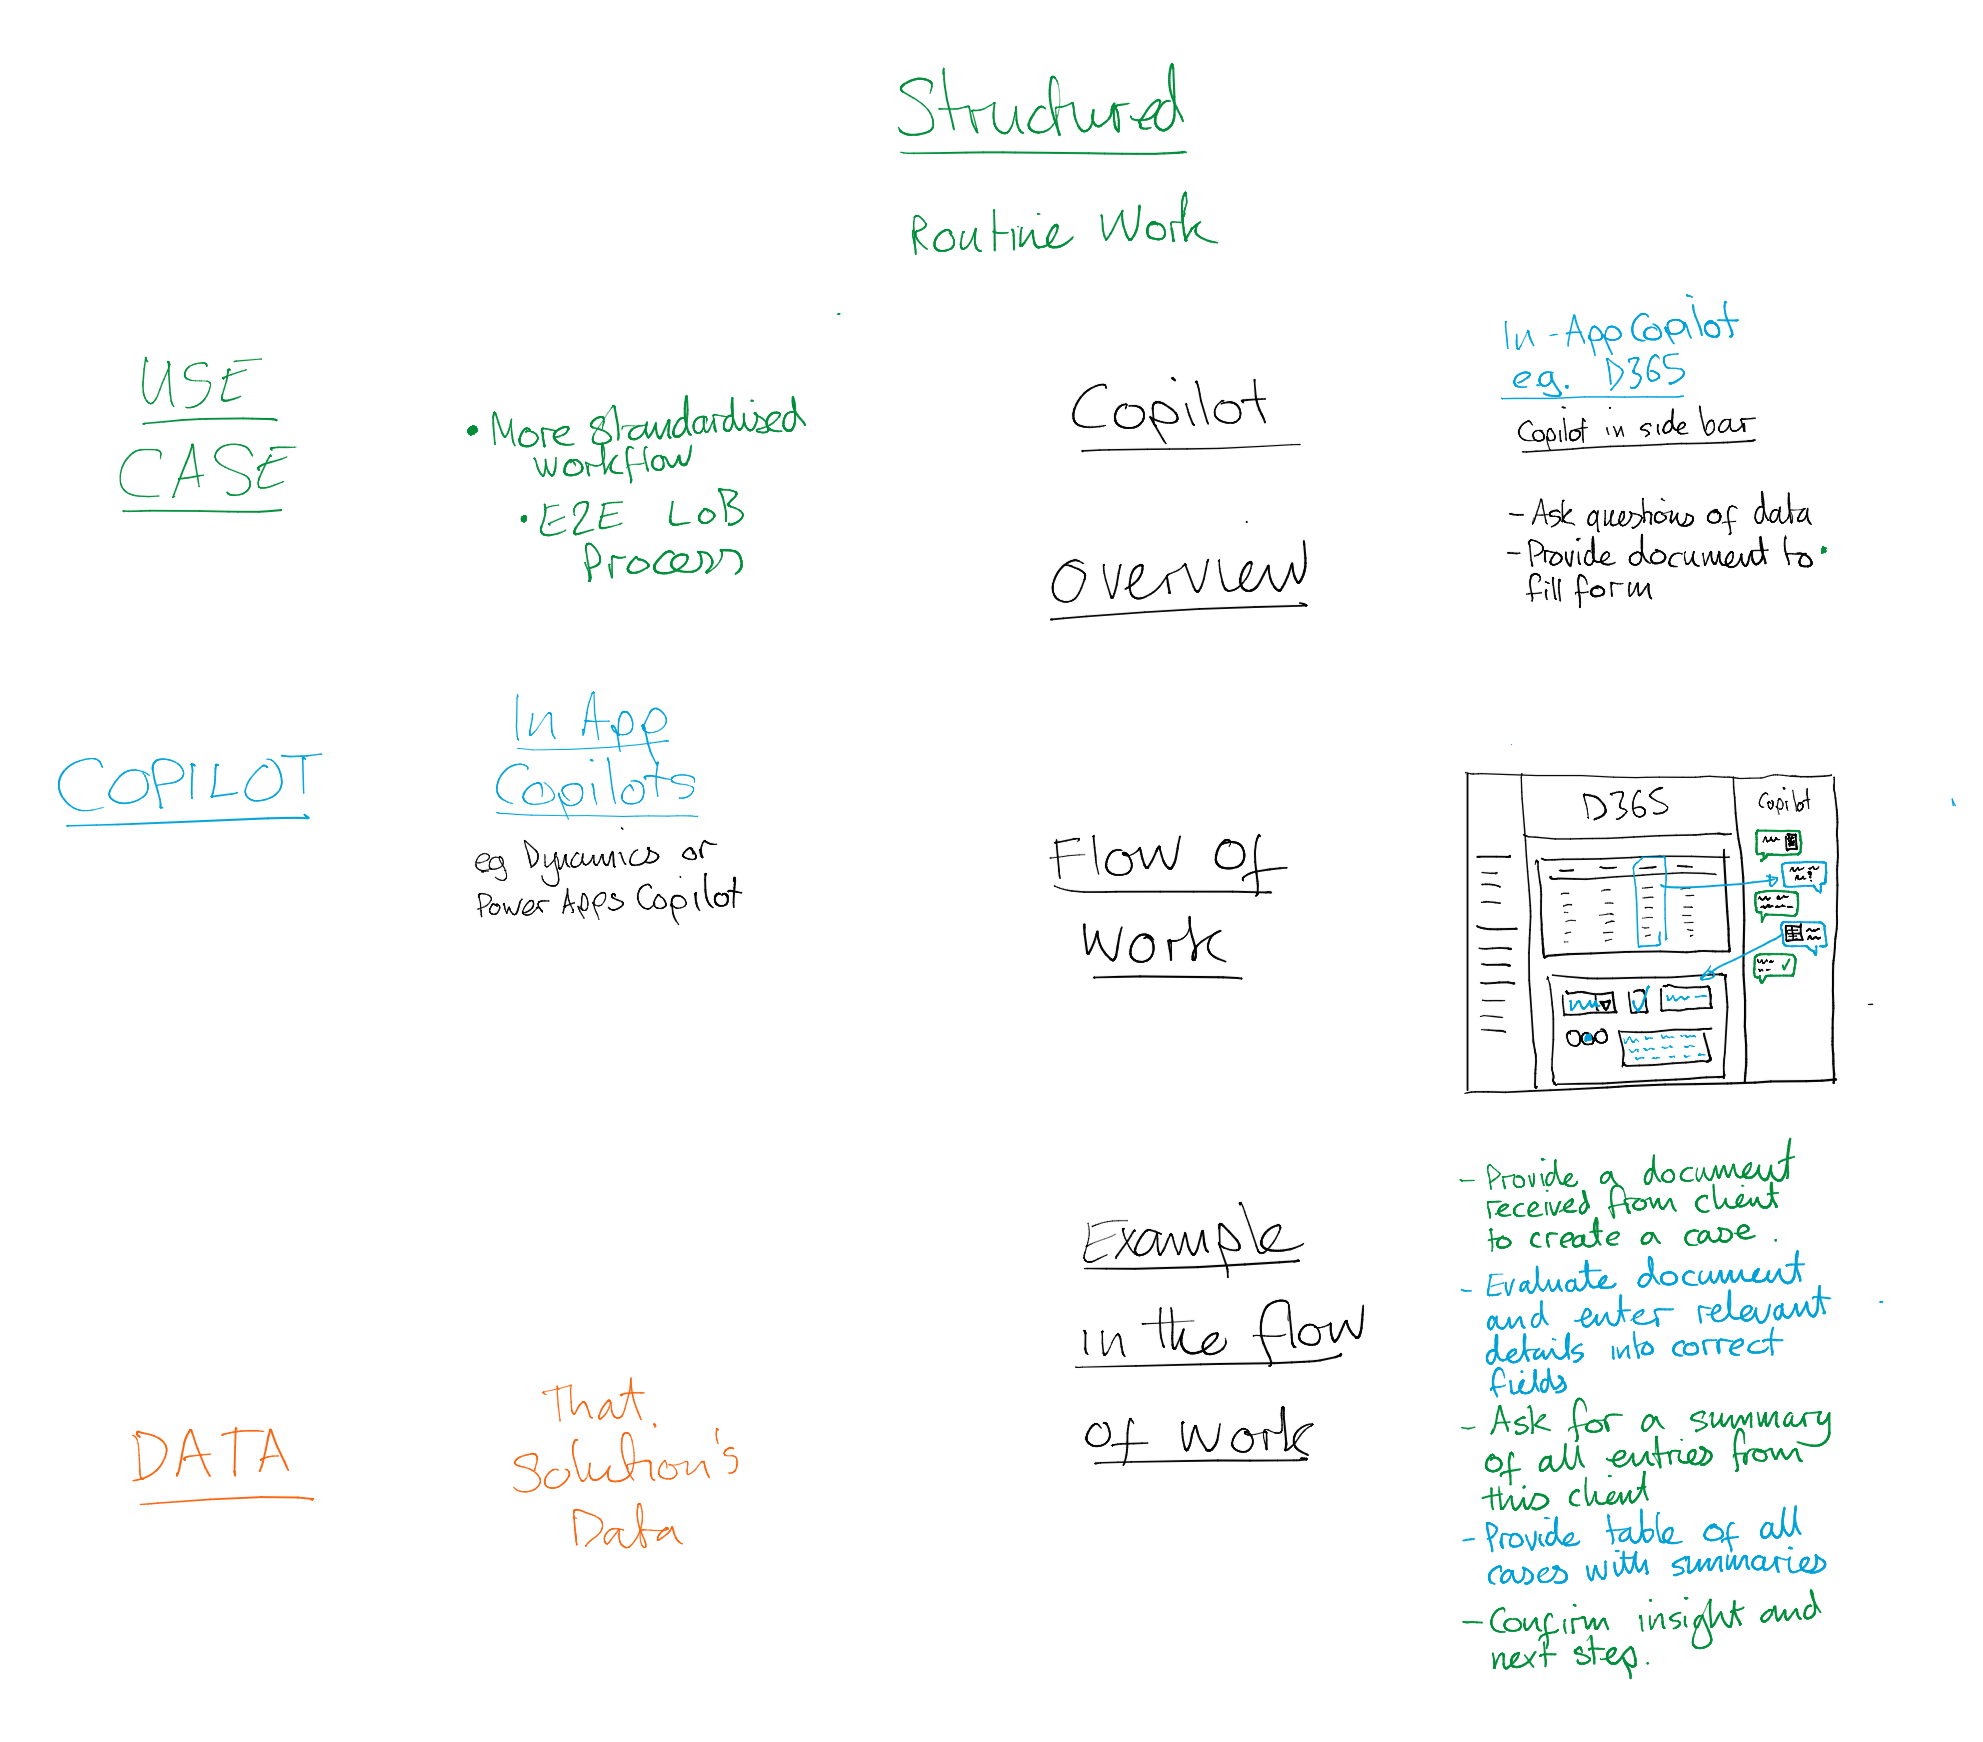 Structured
Routine Work
USE
CASE
• More standardised
workflow
• E2E LoB
Process
COPILOT
In App
Copilots
eg Dynamics or
Power Apps Copilot
DATA
That
Solution's
Data
Copilot
Overview
In-App Copilot
eg. D365
Copilot in side bar
- Ask questions of data
- Provide document to
fill form
Flow of
Work
D365
Copilot
Example
in the flow
of work
- Provide a document
received from client
to create a case.
- Evaluate document
and enter relevant
details into correct
fields
- Ask for a summary
of all entries from
this client
- Provide table of all
cases with summaries
- Confirm insight and
next step.